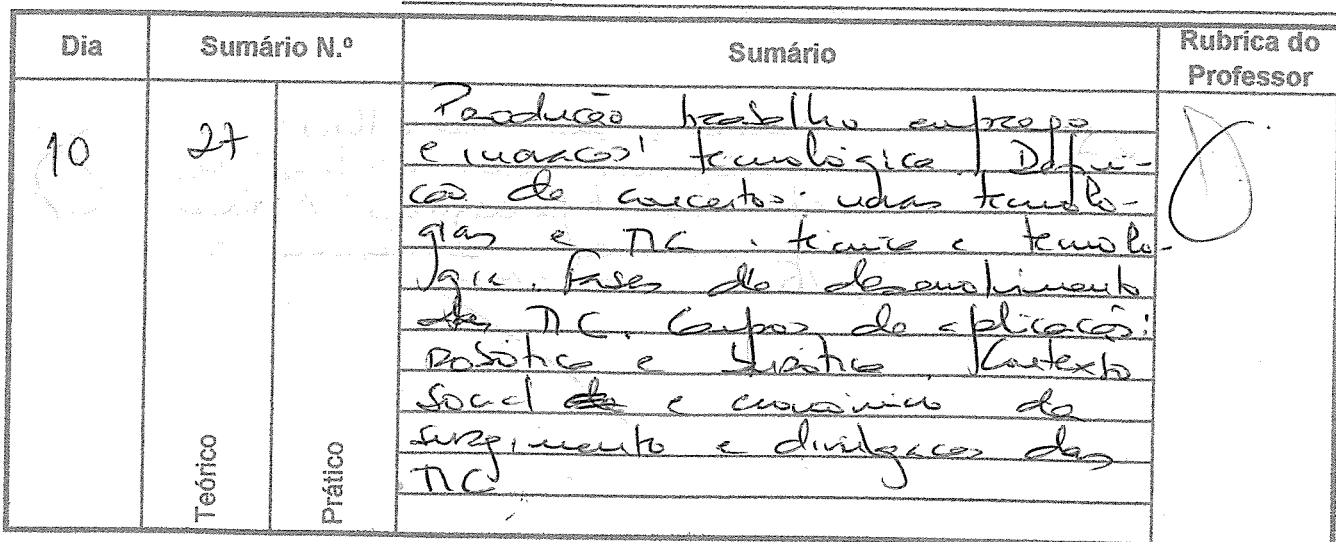 Dia Sumário N.º Sumário Rubrica do Professor
10 27
Produção trabalho emprego
e inovação tecnológica. Defini-
ção de conceitos: novas tecnolo-
gias e TIC, técnica e tecnolo-
gia. Fases de desenvolvimento
das TIC. Campos de aplicação:
robótica e burótica. Contexto
social e económico de
surgimento e divulgação das
TIC
Teórico Prático